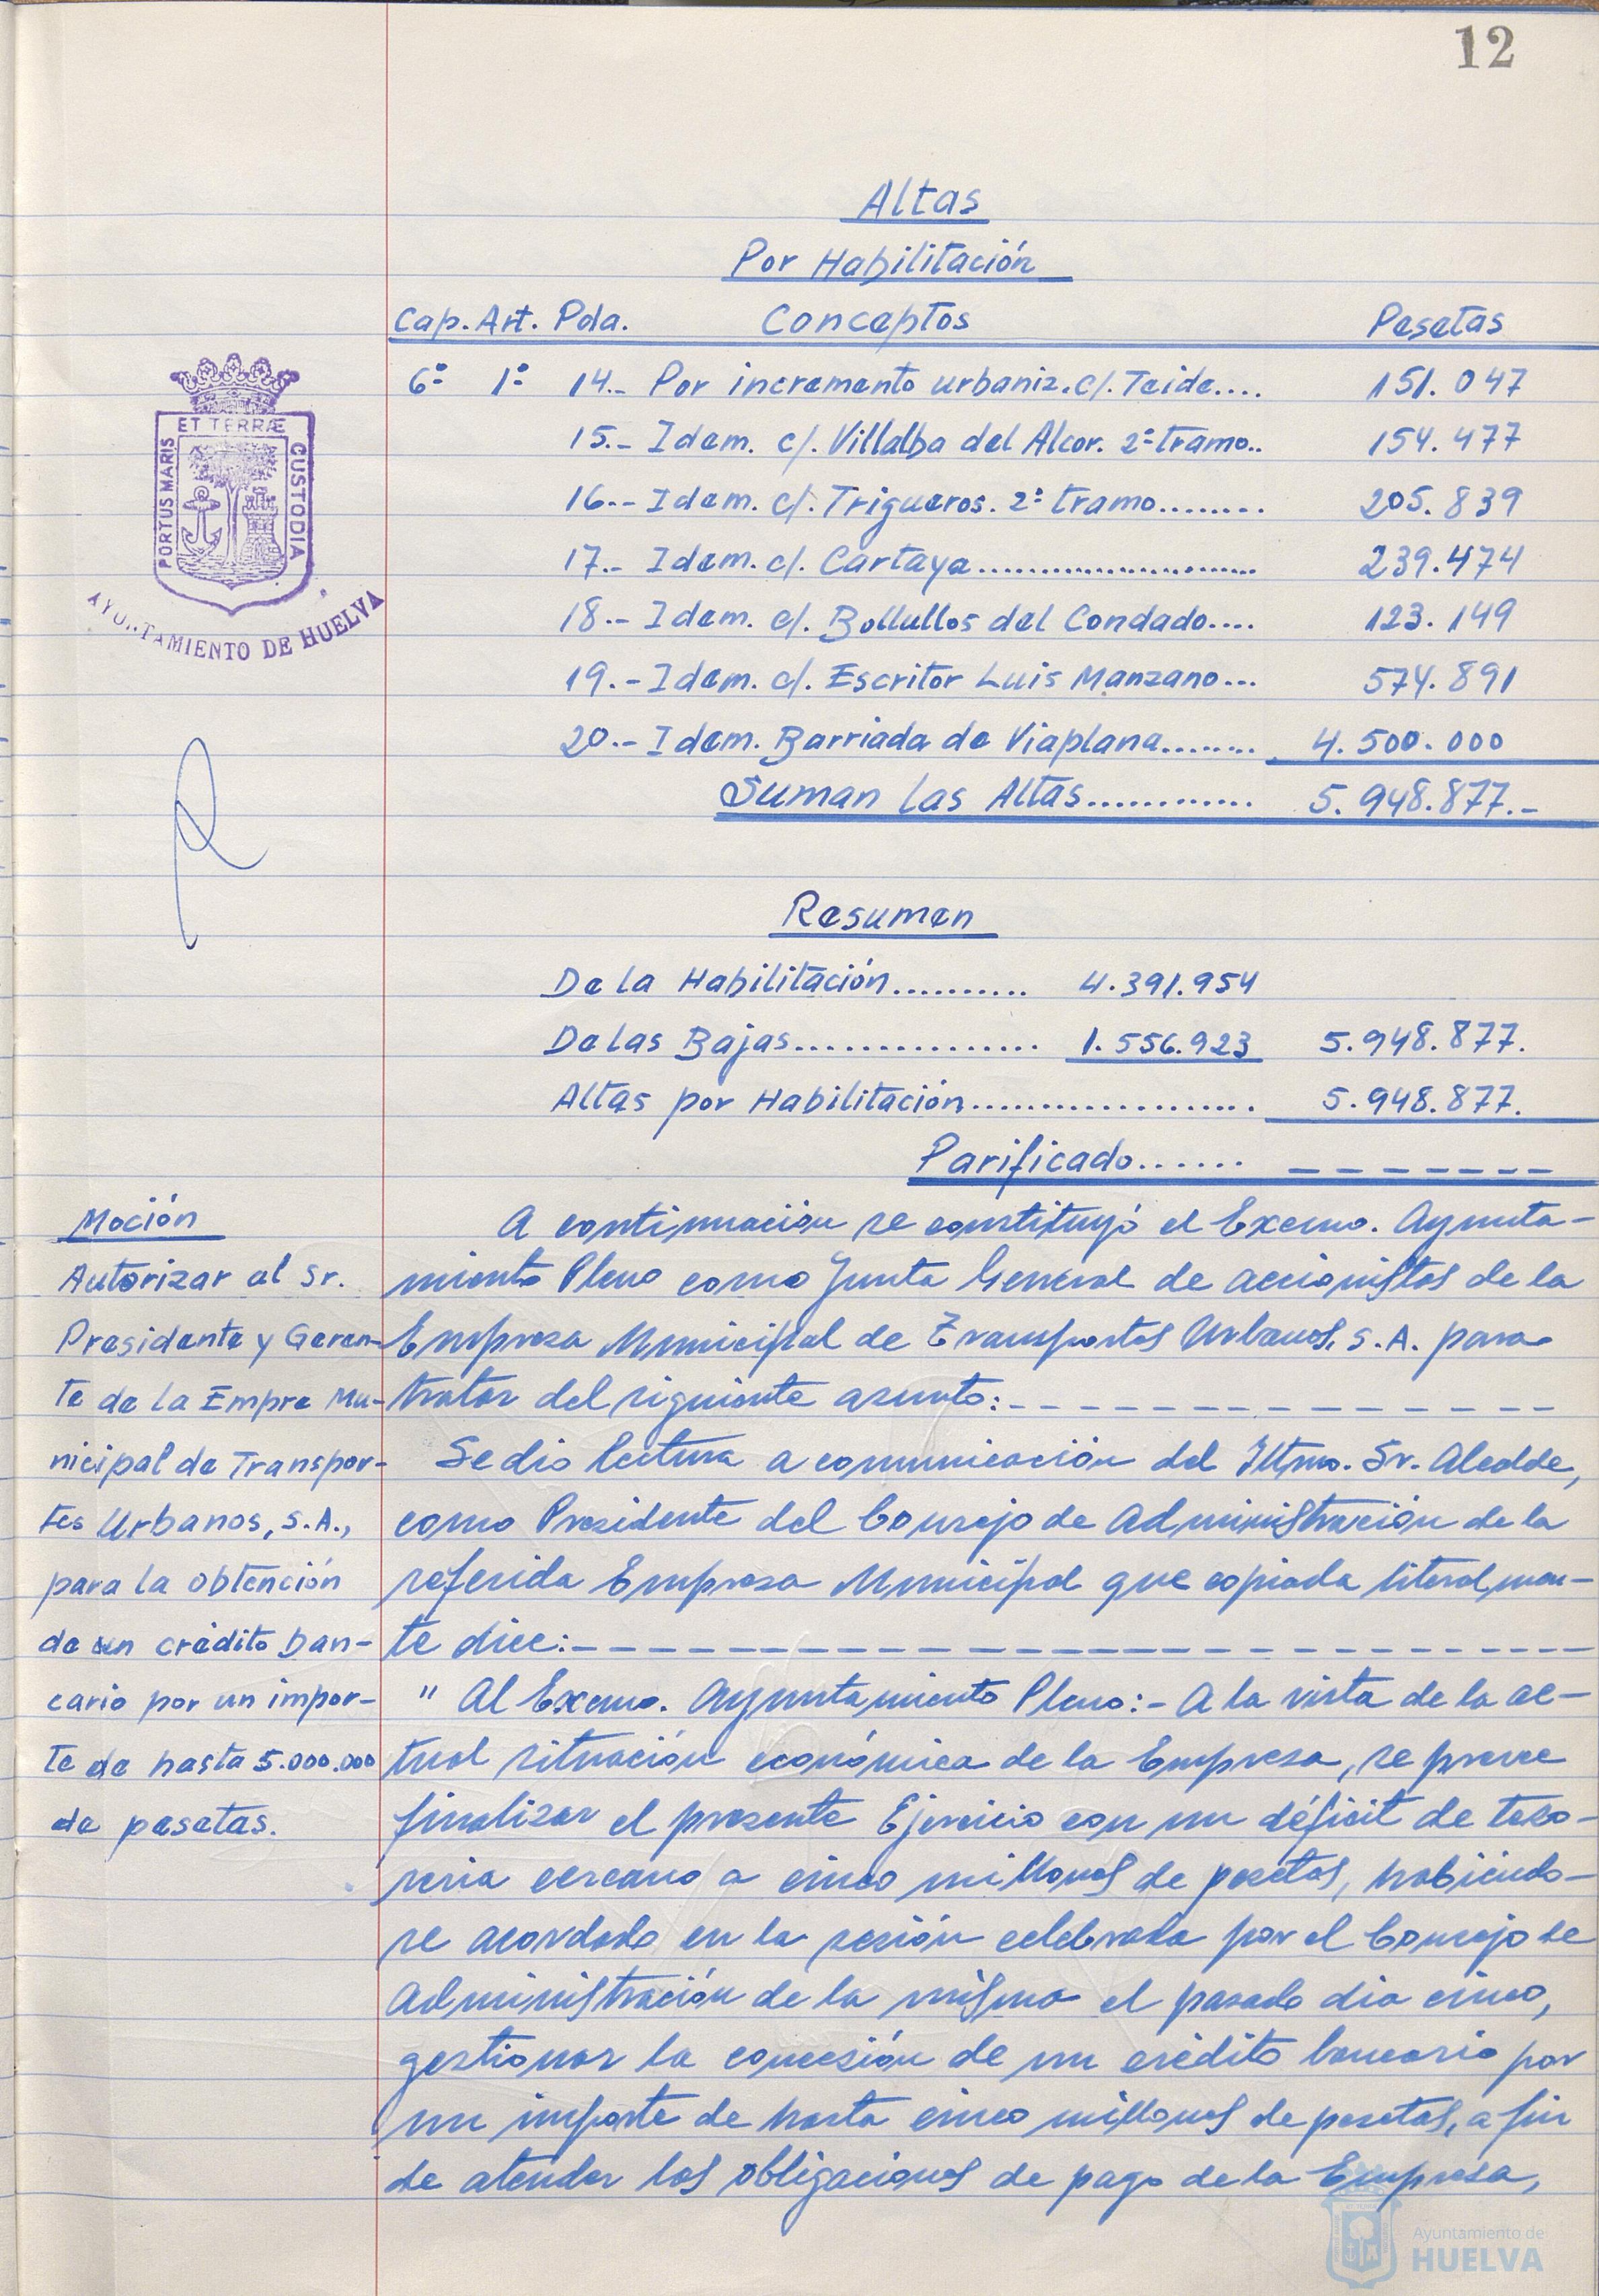 12
Altas
Por Habilitación
Cap. Art. Pda. Conceptos Pesetas
6º 1º 14.- Por incremento urbaniz. c/. Teide.... 151.047
15.- Idem. c/. Villalba del Alcor. 2º tramo.. 154.477
16.- Idem. c/. Trigueros. 2º tramo........ 205.839
17.- Idem. c/. Cartaya........................ 239.474
18.- Idem. c/. Bollullos del Condado.... 123.149
19.- Idem. c/. Escritor Luis Manzano... 574.891
20.- Idem. Barriada de Viaplana........ 4.500.000
Suman las Altas............ 5.948.877.-
ET TERRÆ
PORTUS MARIS
CUSTODIA
AYUNTAMIENTO DE HUELVA
Resumen
De la Habilitación.......... 4.391.954
De las Bajas................ 1.556.923 5.948.877.
Altas por Habilitación................... 5.948.877.
Parificado...... _ _ _ _ _ _ _
Moción
Autorizar al Sr.
Presidente y Geren-
te de la Empre Mu-
nicipal de Transpor-
tes Urbanos, S.A.,
para la obtención
de un crédito ban-
cario por un impor-
te de hasta 5.000.000
de pesetas.
A continuación se constituyó el Excmo. Ayunta-
miento Pleno como Junta General de accionistas de la
Empresa Municipal de Transportes Urbanos, S.A. para
tratar del siguiente asunto:- - - - - - - - - - - - -
Se dio lectura a comunicación del Iltmo. Sr. Alcalde,
como Presidente del Consejo de Administración de la
referida Empresa Municipal que copiada literalmen-
te dice:- - - - - - - - - - - - - - - - - - - - - -
" Al Excmo. Ayuntamiento Pleno:- A la vista de la ac-
tual situación económica de la Empresa, se preve
finalizar el presente Ejercicio con un déficit de teso-
reria cercano a cinco millones de pesetas, habiendo-
se acordado en la sesión celebrada por el Consejo de
Administración de la misma el pasado dia cinco,
gestionar la concesión de un crédito bancario por
un importe de hasta cinco millones de pesetas, a fin
de atender las obligaciones de pago de la Empresa,
Ayuntamiento de
HUELVA